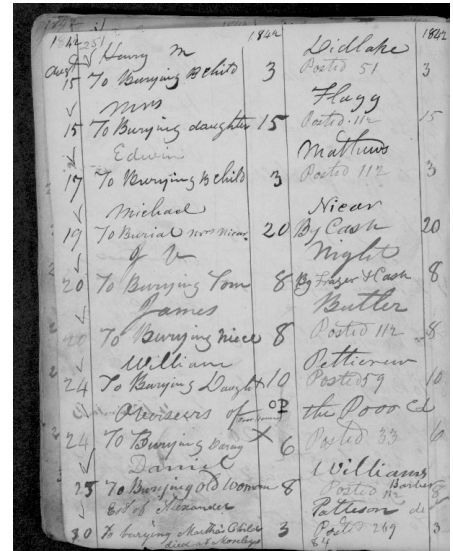 1842 1842 1842
Henry M Didlake
Augt 15 To Burying B Child 3 Posted 51 3
Mrs Flagg
15 To Burying daughter 15 Posted 112 15
Edwin Matthews
17 To Burying B Child 3 Posted 112 3
Michael Nicar
19 To Burial Mrs Nicar 20 By Cash 20
J V Night
20 To Burying Son 8 By Frazer & Cash 8
James Butler
To Burying niece 8 Posted 112 8
William Petticrew
24 To Burying Daught 10 Posted 59 10
of the Poor
24 To Burying 6 Posted 33 6
Daniel Williams
25 To Burying old Woman 8 Posted 112 Barber 8
Est of Alexander Patteson
30 To burying Marthas Child 3 Posted 269 3
died at Mosleys 84